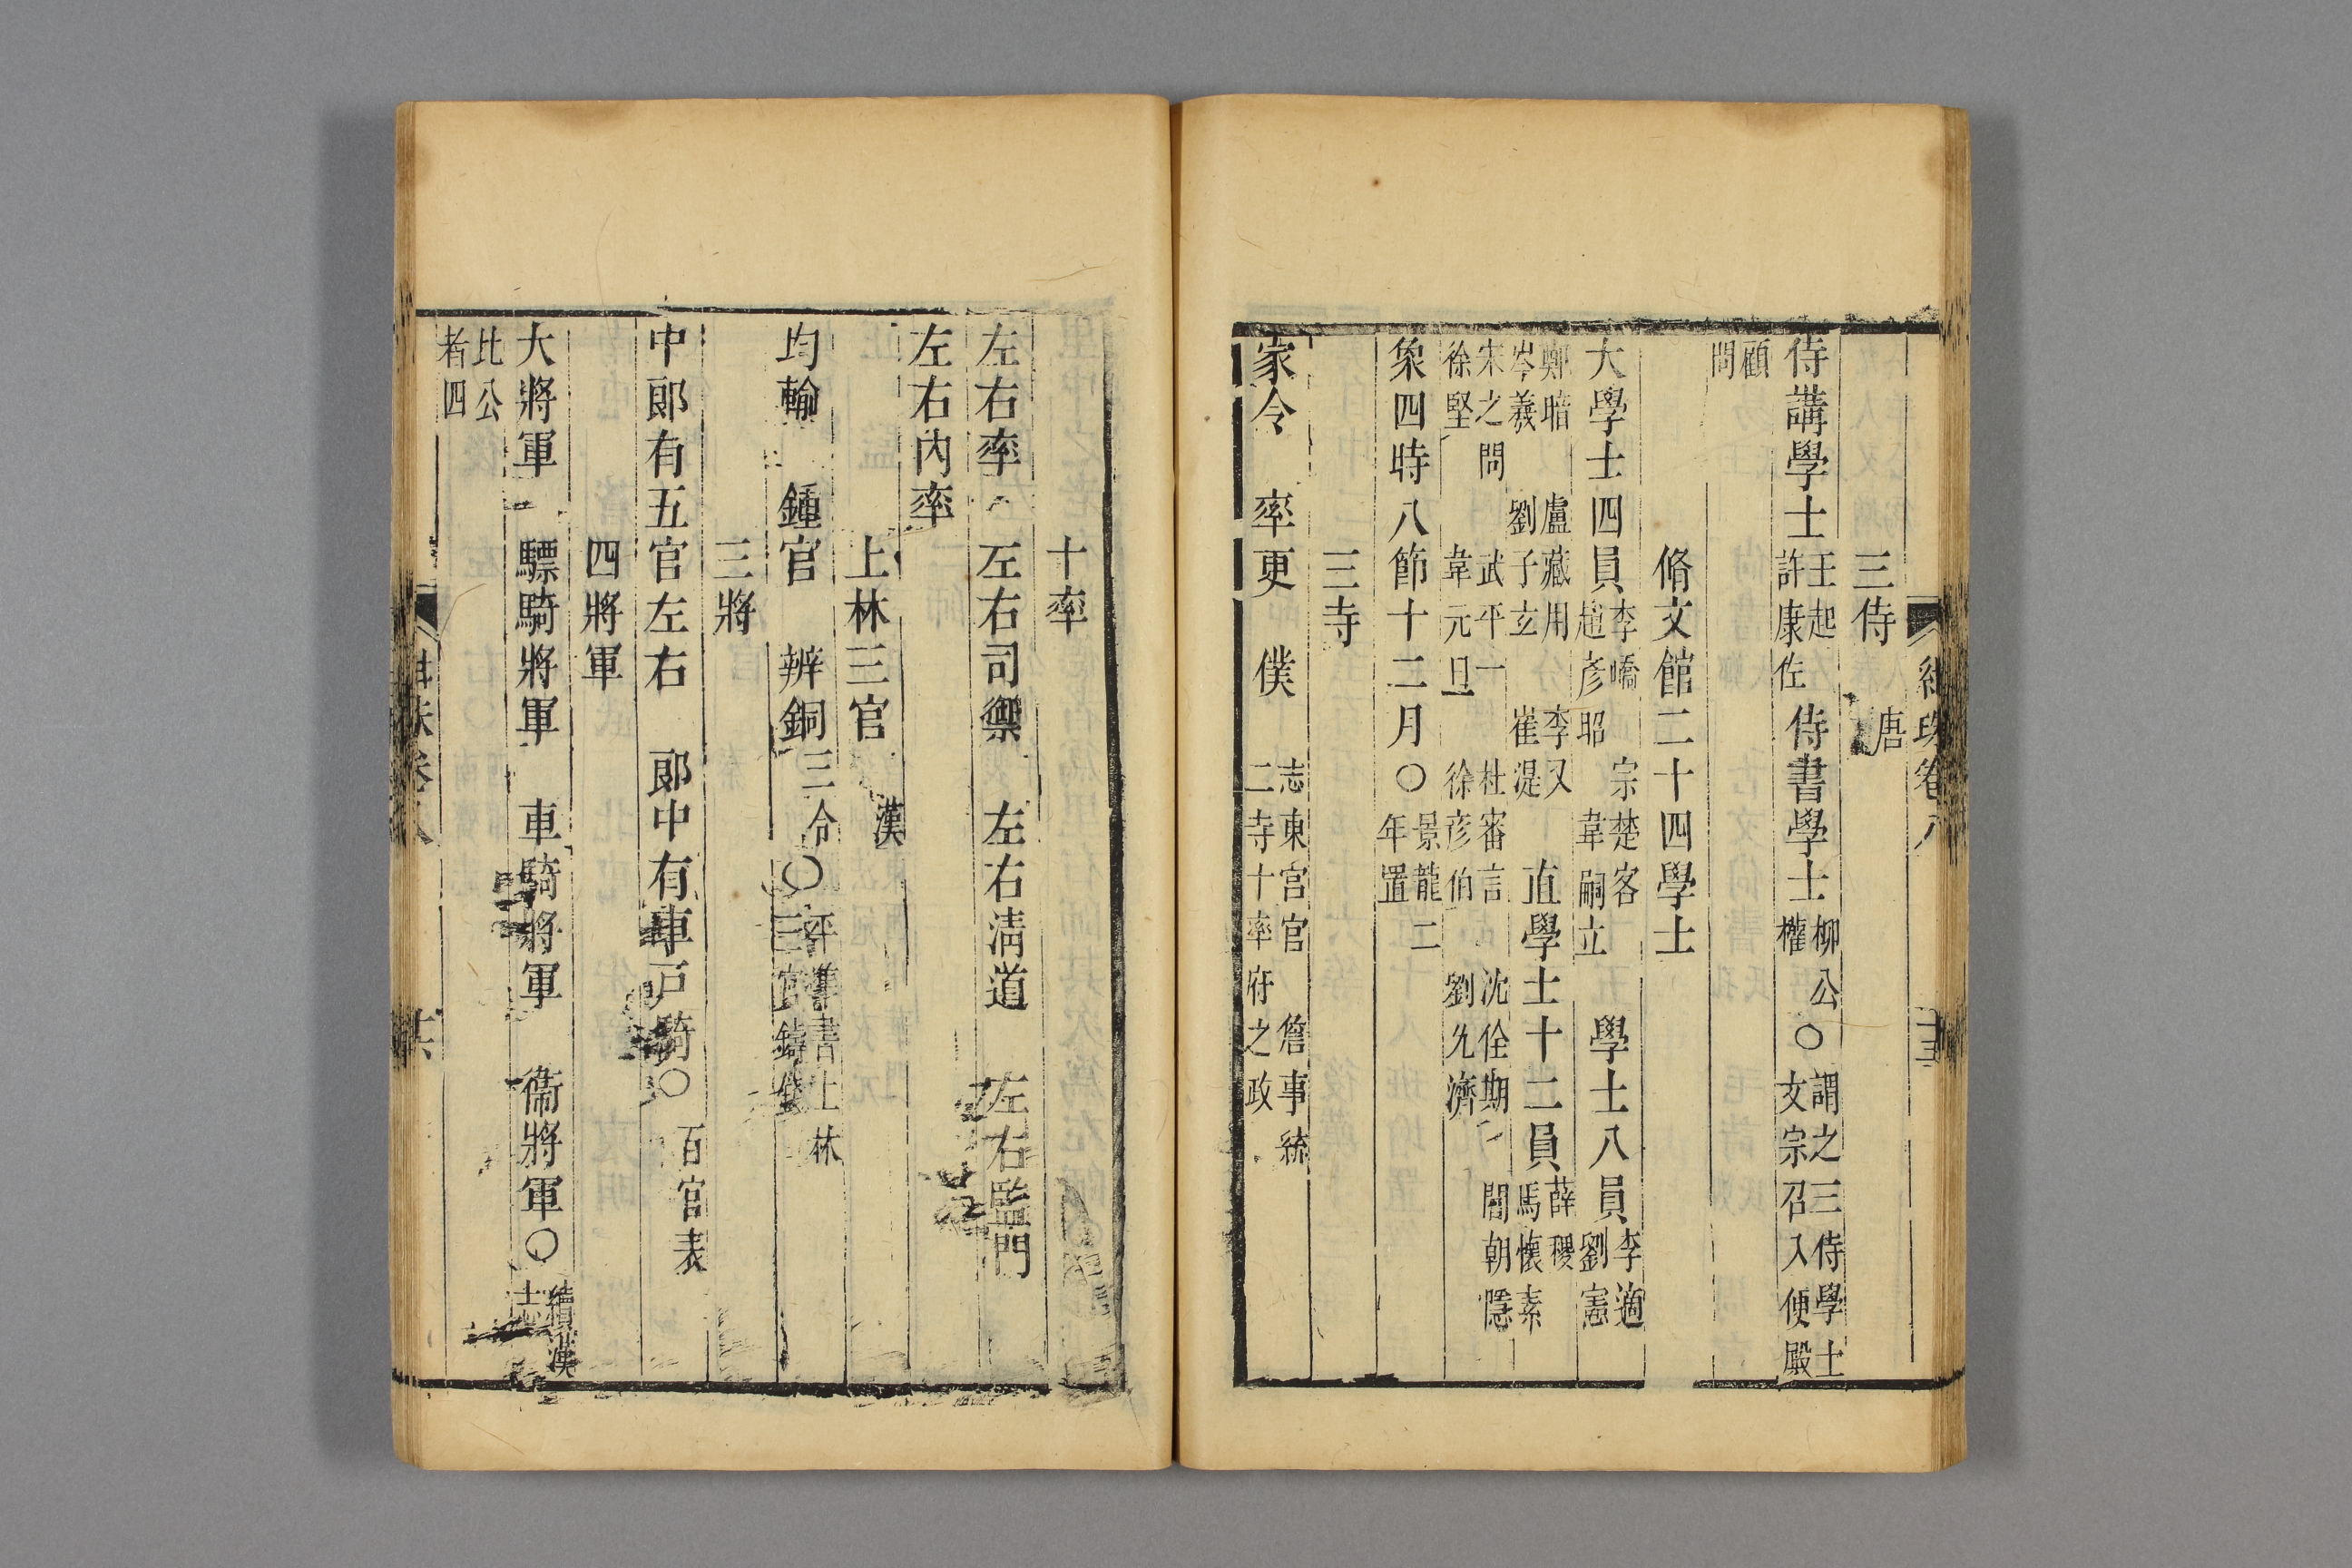 三侍唐
侍講學士王起許康佐 侍書學士柳公權○謂之三侍學士文宗召入便殿
顧問
脩文館二十四學士
大學士四員李嶠 宗楚客趙彦昭 韋嗣立 學士八員李適劉憲
鄭愔 盧藏用 李又岑羲 劉子玄 崔湜 直學士十二員薛稷馬懷素
宋之問 武平一 杜審言 沈佺期 閻朝隱徐堅 韋元旦 徐彦伯 劉允濟
象四時八節十二月○景龍二年置
三寺
家令 率更 僕 志東宮官 詹事統二寺十率府之政
十率
左右率 左右司禦 左右清道 左右監門
左右內率
上林三官漢
均輸 鍾官 辨銅三令○平準書上林三官鑄錢
三將
中郎有五官左右 郎中有車戸騎○百官表
四將軍
大將軍 驃騎將軍 車騎將軍 衞將軍○續漢志
比公者四